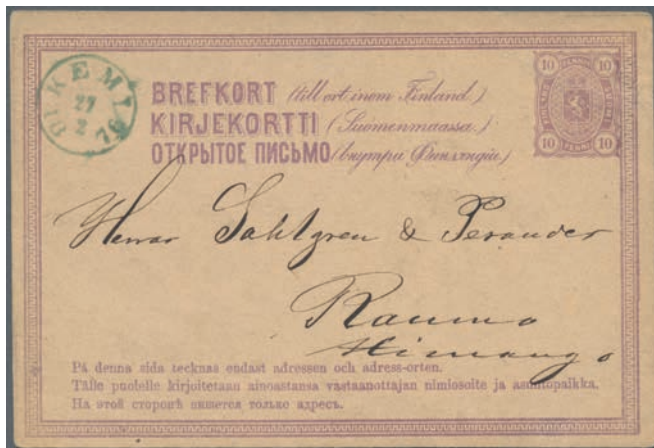 KEMI
27
2
78
10 10
BREFKORT (till ort inom Finland.)
KIRJEKORTTI (Suomenmaassa.)
ОТКРЫТОЕ ПИСЬМО (внутри Финляндіи)
10 10
Herrar Sahlgren & Perander
Raumo
Himango
På denna sida tecknas endast adressen och adress-orten.
Tälle puolelle kirjoitetaan ainoastansa vastaanottajan nimiosoite ja asuntopaikka.
На этой сторонѣ пишется только адресъ.